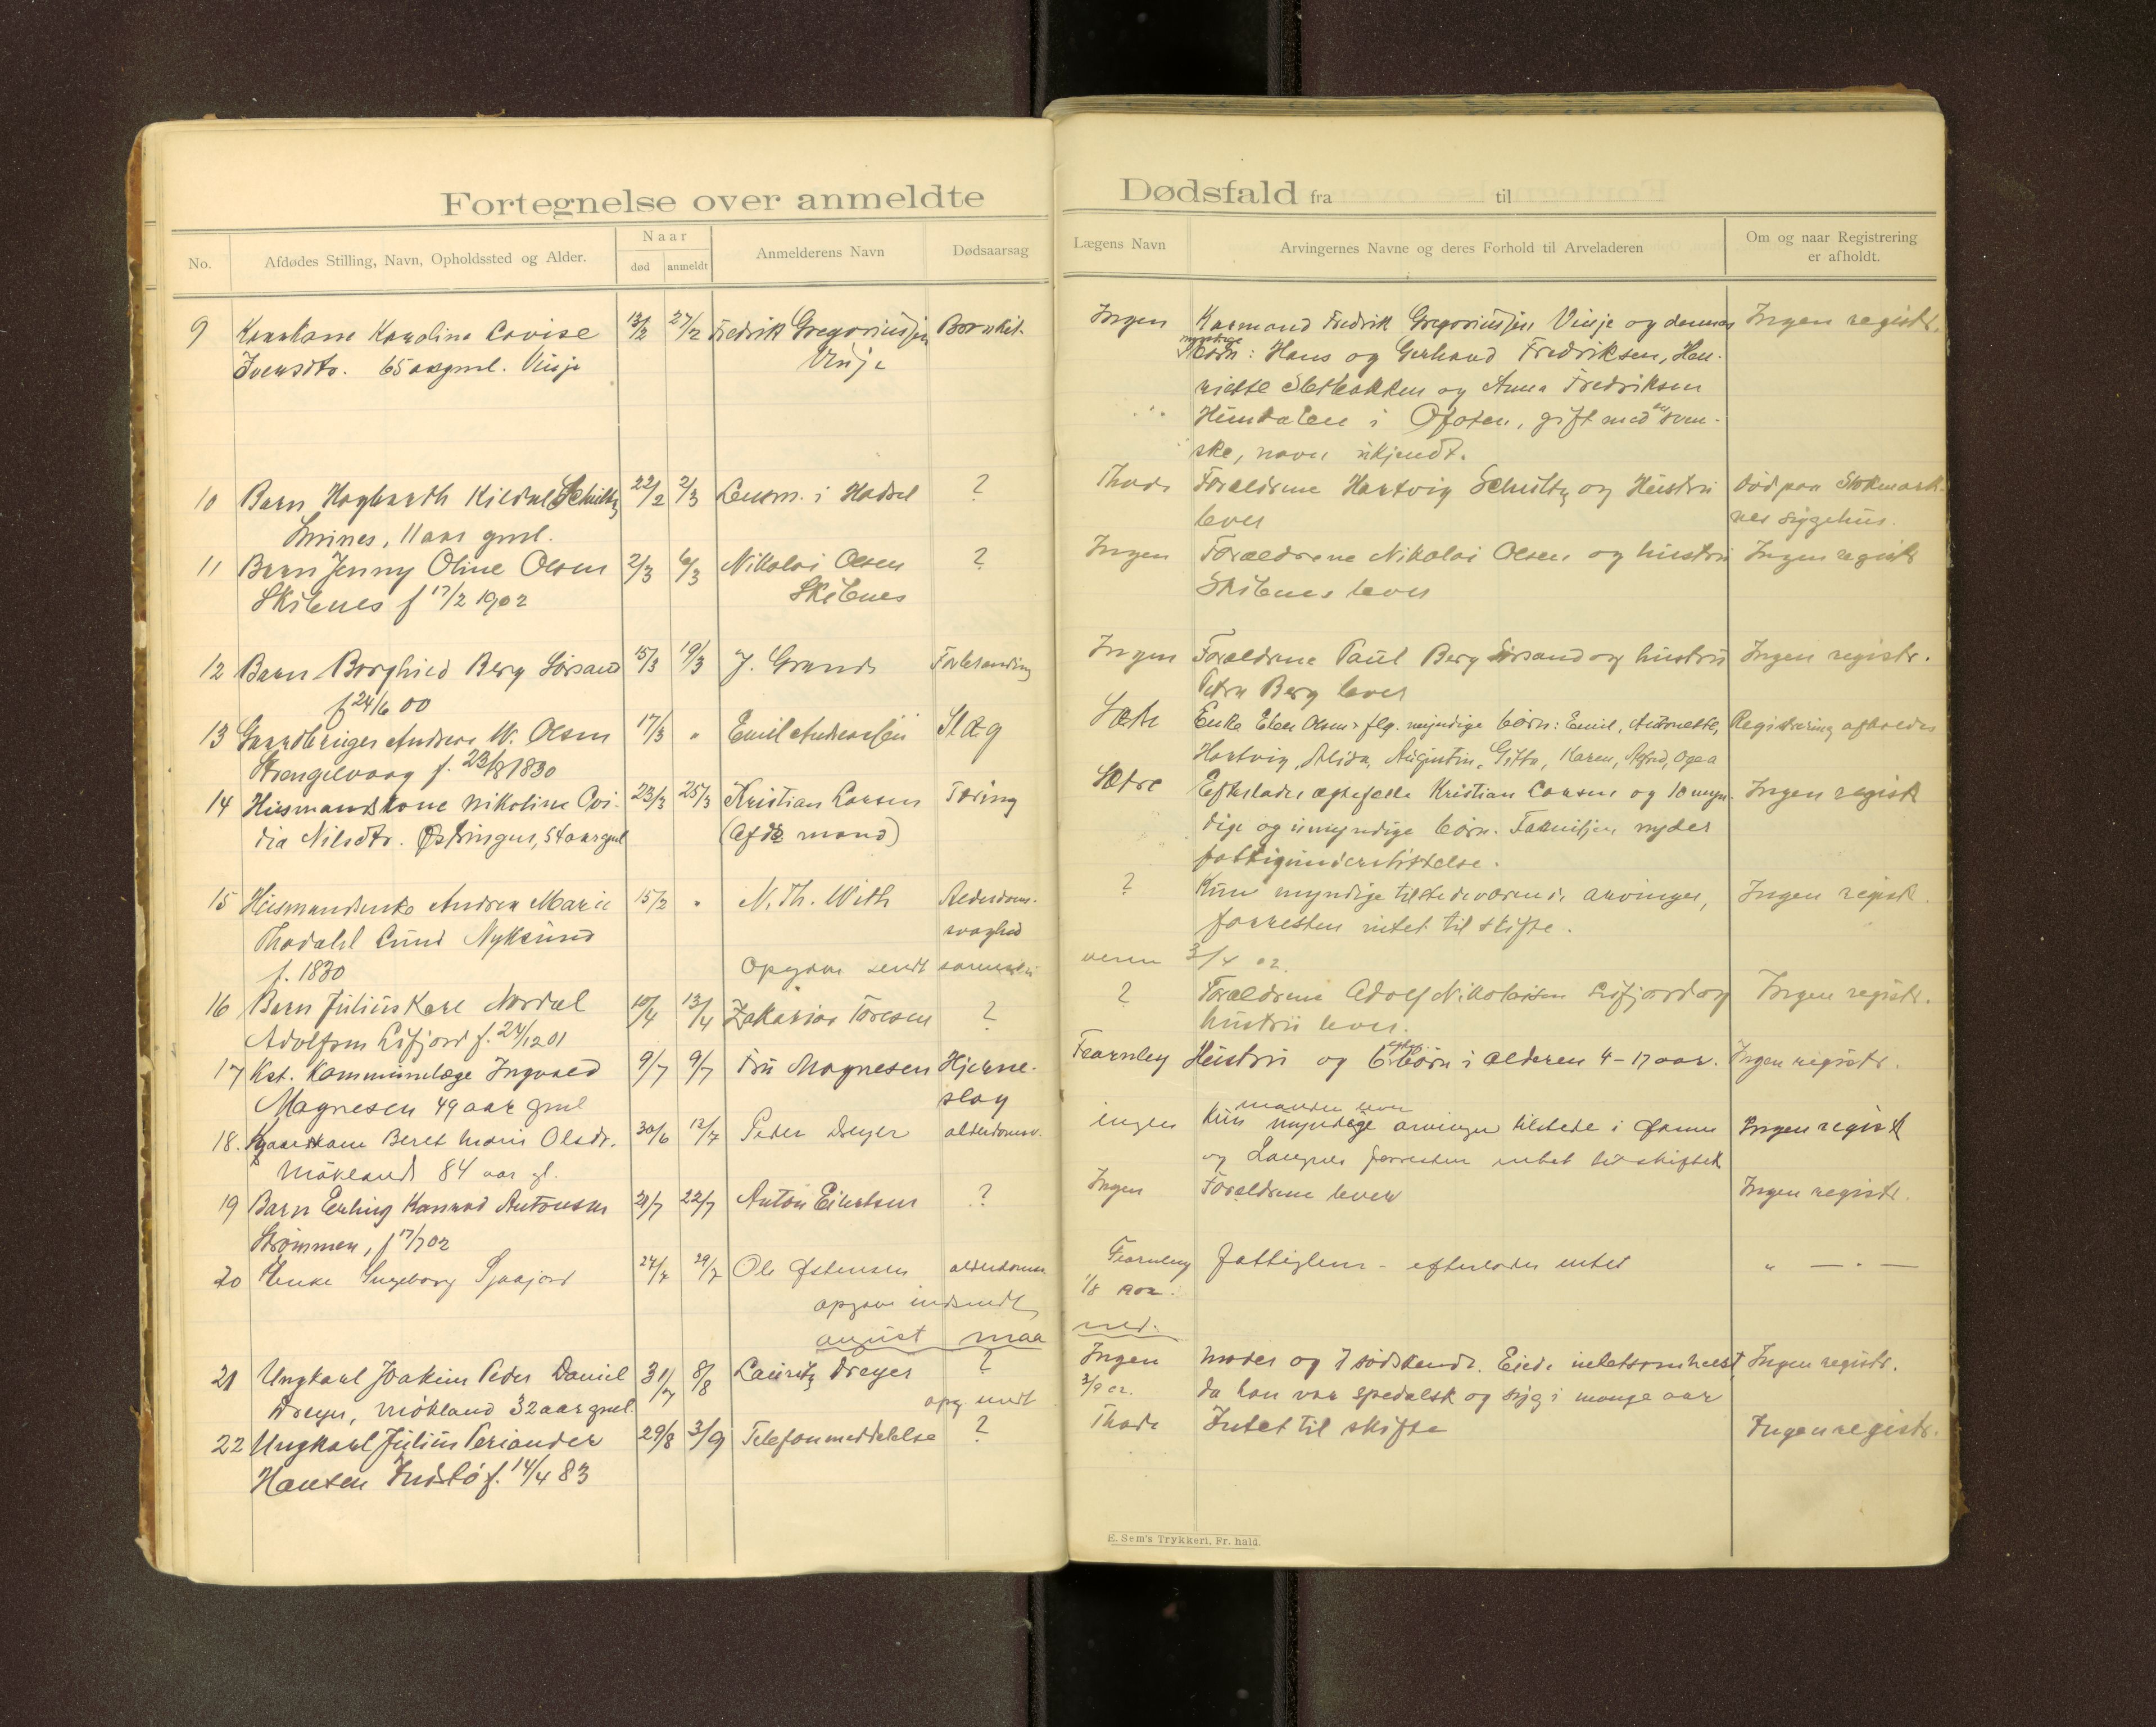 Fortegnelse over anmeldte
Dødsfald fra til
No.
Afdødes Stilling, Navn, Opholdssted og Alder.
Naar
død
anmeldt
Anmelderens Navn
Dødsaarsag
Lægens Navn
Arvingernes Navne og deres Forhold til Arveladeren
Om og naar Registrering
er afholdt.
9 Karoline Lovise 13/2 27/2 Fredrik Gregoriussen
65 aar gml. Vinje Vinje
Ingen Fredrik Gregoriussen Vinje og Ingen registr.
myndige
Børn: Hans og Gerhard Fredriksen, Hen-
og Anna Fredriksen
i Ofoten, gift med en sven-
ske, navn ukjendt.
10 Barn Hagbarth Kildal Schultz 22/2 2/3 Lensm. i Hadsel ?
11 aar gml.
Thode Forældrene Hartvig Schultz og Hustru Død paa Stokmark-
lever nes sygehus.
11 Barn Jenny Oline Olsen 2/3 6/3 Nikolai Olsen ?
Skibnes f 17/2 1902 Skibnes
Ingen Forældrene Nikolai Olsen og hustru Ingen registr
Skibnes lever
12 Barn Borghild Berg Sørsand 15/3 19/3 J. Grande
f 24/6 00
Ingen Forældrene Paul Berg Sørsand og hustru Ingen registr.
Petra Berg lever
13 Gaardbruger Andreas W. Olsen 17/3 " Emil Andreassen Slag
Strengelvaag f. 23/8 1830
Sætre Enke Olsen & flg. myndige børn: Emil, Antonette, Registrering afholdes
Hartvig, Alida, Augustin, Gitta, Karen,
14 Husmandskone Nikoline Ovi- 23/3 25/3 Kristian Larsen Tæring
dia Nilsdtr. Østringen, 54 aar gml (Afdø mand)
Sætre Efterlader ægtefælle Kristian Larsen og 10 myn- Ingen registr
dige og umyndige børn. Familjen nyder
fattigunderstøttelse.
15 Husmandsenke Andrea Marie 15/2 " N. Th. With Alderdoms-
Lund Nyksund svaghed
f. 1830
? Kun myndige tilstedeværende arvinger, Ingen registr.
forresten intet til skifte.
Opgave sendt
3/4 02.
16 Barn Julius Kare Nordal 10/4 13/4 Zakarias Toresen ?
Adolfsen Lifjord f. 24/12 01
? Forældrene Adolf Nikolaisen Lifjord og Ingen registr.
hustru lever.
17 Kst. Kommunelæge Ingvald 9/7 9/7 Fru Magnesen Hjerne-
Magnesen 49 aar gml slag
Fearnley Hustru og 6 børn i alderen 4-17 aar. Ingen registr.
18. Beret Maris Olsdr. 30/6 12/7 Peder Dreyer alderdomsv.
Mökland 84 aar gl.
manden lever
ingen Kun myndige arvinger tilstede i
og Langnes forresten intet til skifte
Ingen registr
19 Barn Erling Konrad Antonsen 21/7 22/7 Anton Eilertsen ?
Strømmen, f 17/7 02
Ingen Forældrene lever Ingen registr.
20 Enke Ingeborg 24/7 29/7 Ole Østensen alderdomsv
Fearnley fattiglem - efterlader intet " — " —
opgave indsendt
1/8 902.
august maa
ned.
21 Ungkarl Joakim Peder Daniel 31/7 8/8 Lauritz Dreyer ?
Dreyer, Mökland 32 aar gml.
Ingen Moder og 7 sødskende. Eiede intetsomhelst, Ingen registr.
da han var spedalsk og syg i mange aar
opg. sendt
2/9 02.
22 Ungkarl Julius Periander 29/8 3/9 Telefonmeddelelse ?
Hansen f. 14/4 83
Thode Intet til skifte Ingen registr.
E. Sem's Trykkeri, Fr. hald.